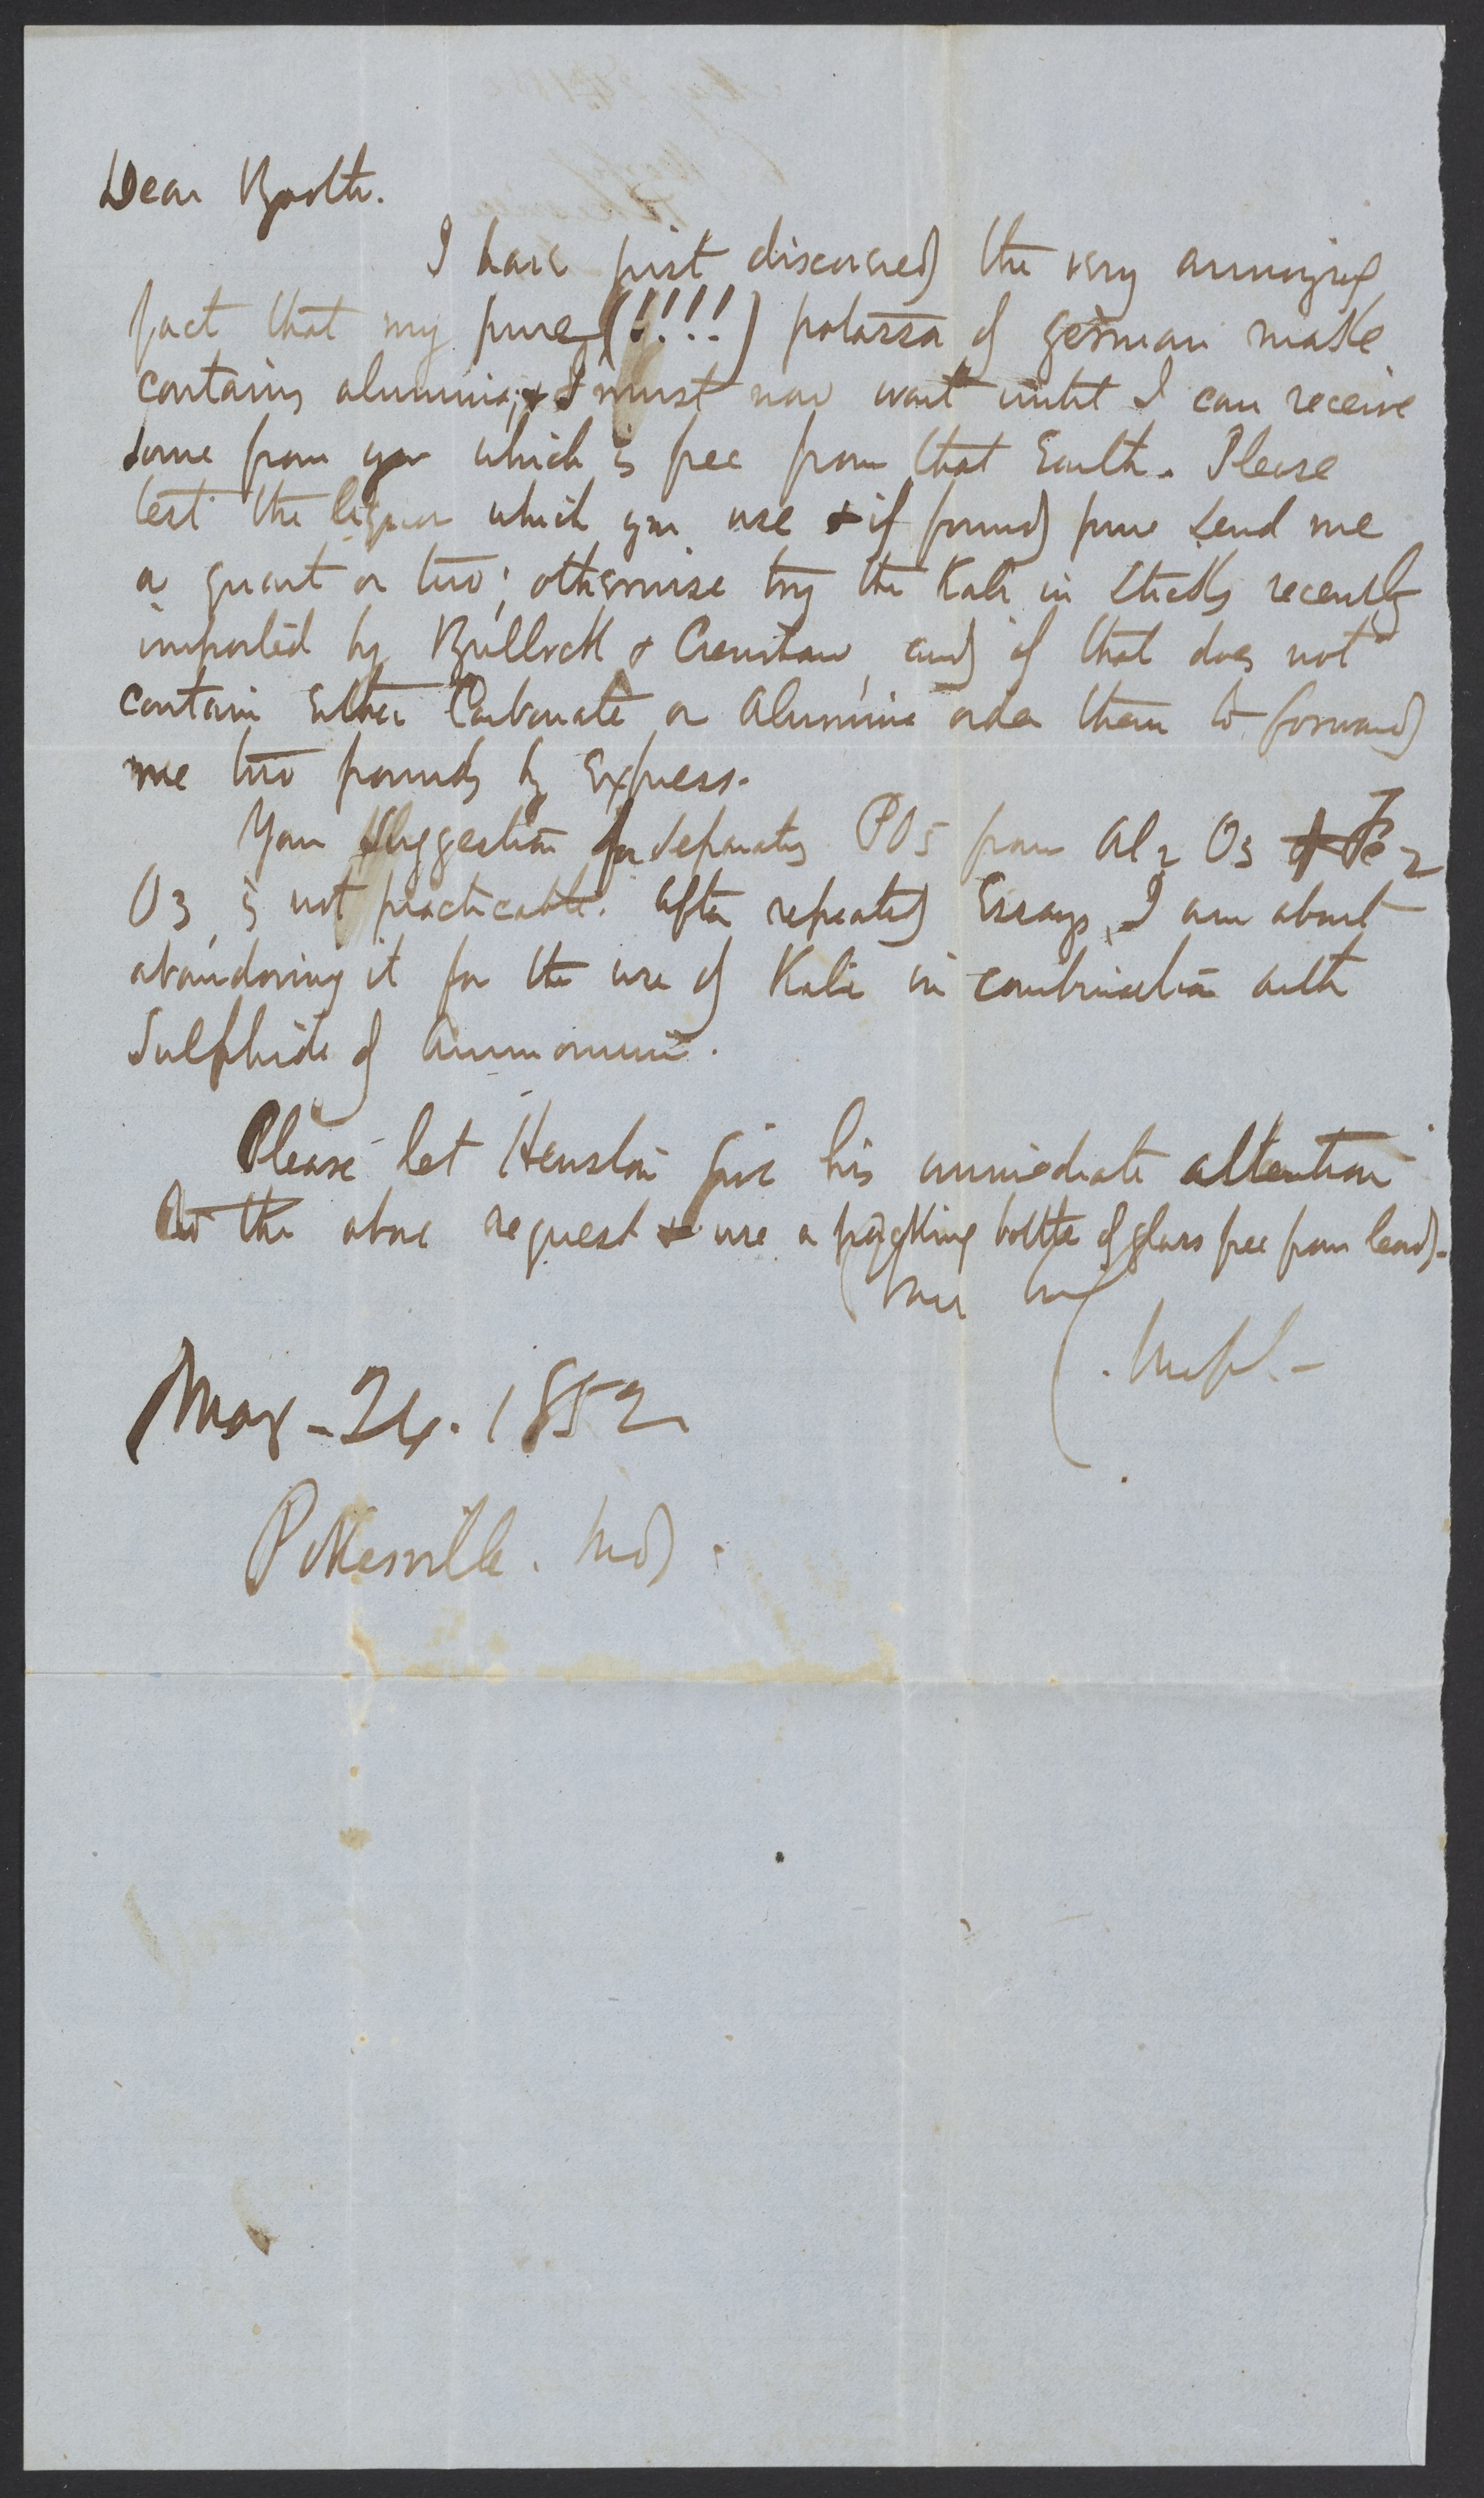 Dear Booth.
I have just discovered the very annoying
fact that my pure (!!!!) potassa of german make
contains alumina; & I must now wait until I can receive
some from you which is free from that Earth. Please
test the liquor which you use & if found pure send me
a quart or two; otherwise try the Kali in sticks recently
imported by Bullock & Crenshaw, and if that does not
contain either Carbonate or Alumina order them to forward
me two pounds by Express.
Your suggestion for separating PO5 from Al2 O3 & Fe2
O3, is not practicable. After repeated Essays, I am about
abandoning it for the use of Kali in combination with
Sulphide of Ammonium.
Please let Henston give his immediate attention
to the above request & use a packing bottle of glass free from lead.
Your
May - 24. 1852
Pikesville. Md.